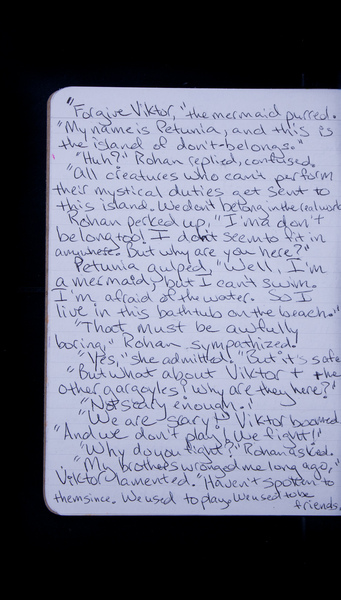 "Forgive Viktor," the mermaid purred.
"My name is Petunia, and this is
the island of don't-belongs."
"Huh?" Rohan replied, confused.
"All creatures who can't perform
their mystical duties get sent to
this island. We don't belong in the real world
Rohan perked up, "I'm a don't
belong too! I don't seem to fit in
anywhere. But why are you here?"
Petunia gulped, "Well, I'm
a mermaid, but I can't swim.
I'm afraid of the water. So I
live in this bathtub on the beach."
"That must be awfully
boring," Rohan sympathized.
"Yes," she admitted. "But it's safe
"But what about Viktor + the
other gargoyles? Why are they here?"
"Not scary enough."
"We are scary!" Viktor boomed.
"And we don't play! We fight!"
"Why do you fight?" Rohan asked.
"My brothers wronged me long ago,"
Viktor lamented. "Haven't spoken to
them since. We used to play. We used to be
friends.